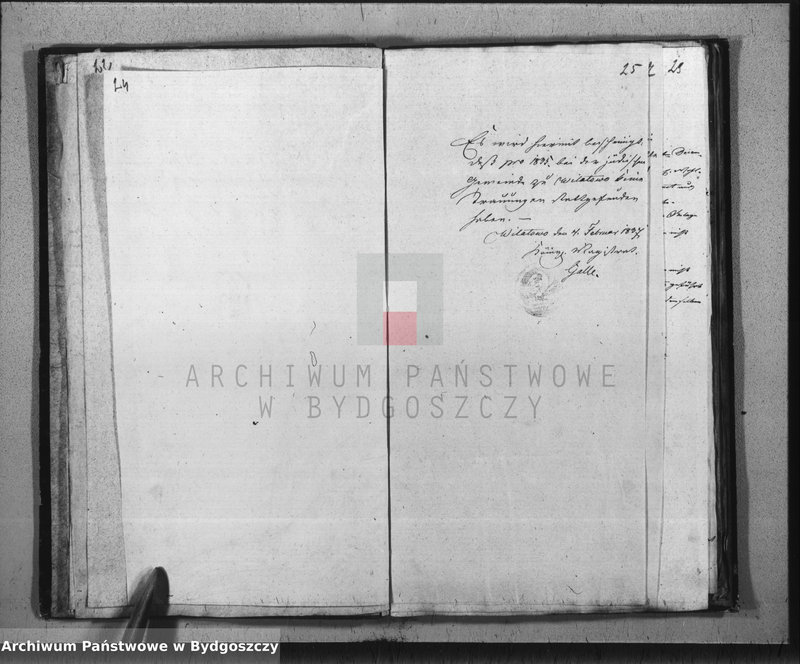 22
24
25
23
Es wird hiermit bescheinigt
daß pro 1835. bei der jüdischen
Gemeinde zu Wilatowo keine
Trauungen stattgefunden
haben. —
Wilatowo den 4. Februar 1837
Königl. Magistrat.
Galle.
ARCHIWUM PAŃSTWOWE
W BYDGOSZCZY
Archiwum Państwowe w Bydgoszczy